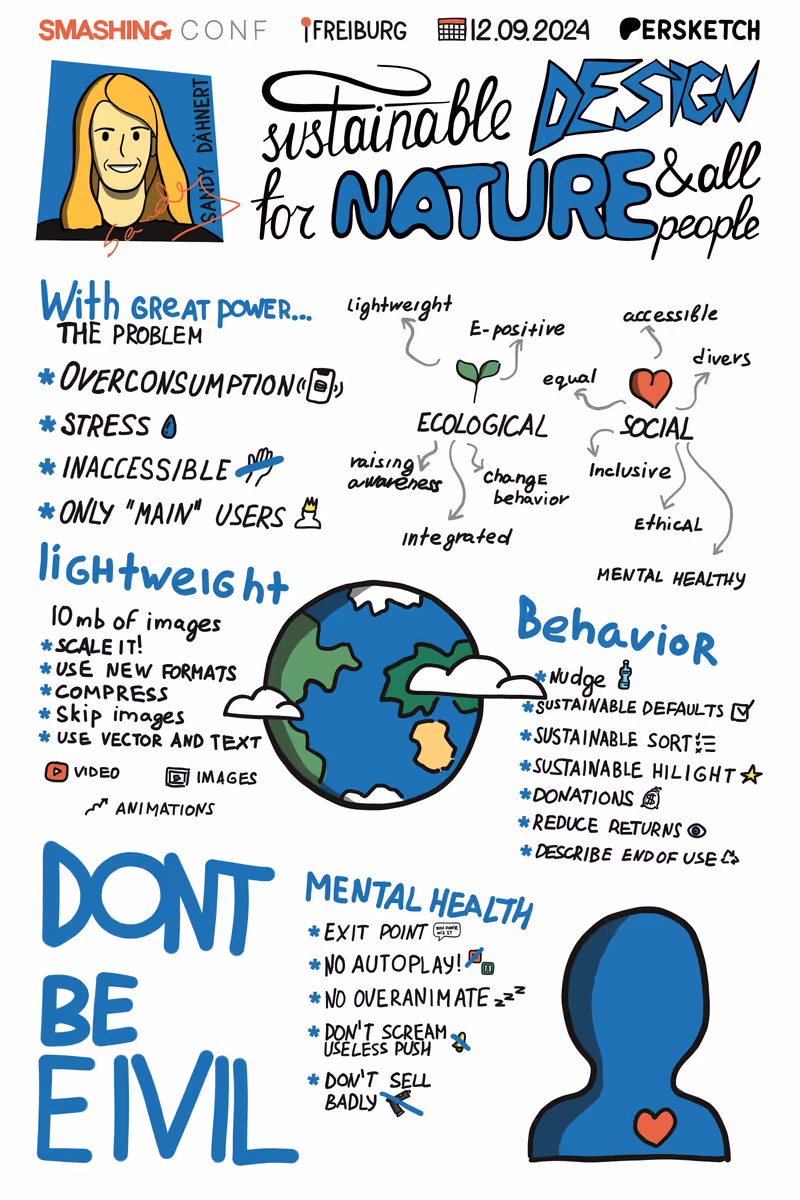 SMASHING CONF
FREIBURG
12.09.2024
PERSKETCH
SANDY DÄHNERT
Sandy
sustainable DESIGN
for NATURE & all
people
With GREAT POWER...
THE PROBLEM
* OVERCONSUMPTION
* STRESS
* INACCESSIBLE
* ONLY "MAIN" USERS
lightweight
E-positive
ECOLOGICAL
raising
awareness
change
behavior
integrated
accessible
divers
equal
SOCIAL
Inclusive
EthicAL
MENTAL HEALTHY
liGHtweIGht
10mb of images
* SCALE IT!
* USE NEW FORMATS
* COMPRESS
* Skip images
* USE VECTOR AND TEXT
VIDEO
IMAGES
ANIMATIONS
BehavioR
* Nudge
* SUSTAINABLE DEFAULTS
* SUSTAINABLE SORT
* SUSTAINABLE HILIGHT
* DONATIONS
$
* REDUCE RETURNS
* DESCRIBE END OF USE
DONT
BE
EIVIL
MENTAL HEALTH
* EXIT POINT
* NO AUTOPLAY!
* NO OVERANIMATE zzz
* DON'T SCREAM
USELESS PUSH
* DON'T SELL
BADLY